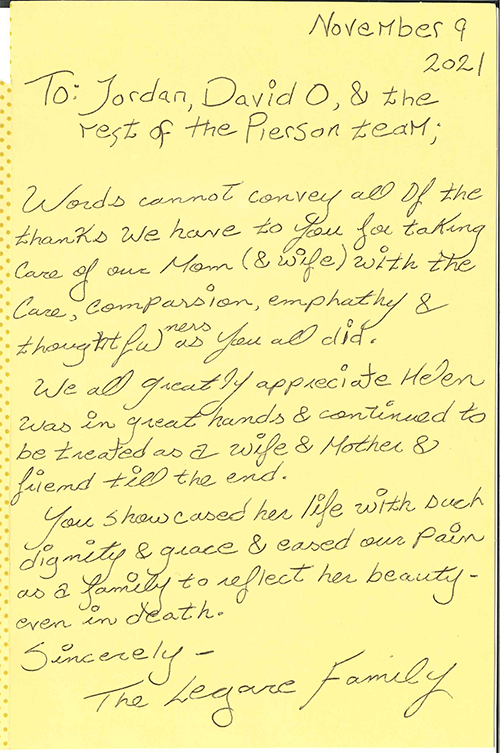 November 9
2021
To: Jordan, David O, & the
rest of the Pierson team;
Words cannot convey all of the
thanks we have to you for taking
care of our Mom (& wife) with the
care, compassion, emphathy &
thoughtfulness as you all did.
We all greatly appreciate Helen
was in great hands & continued to
be treated as a wife & Mother &
friend till the end.
You showcased her life with such
dignity & grace & eased our pain
as a family to reflect her beauty-
even in death.
Sincerely -
The Legare Family